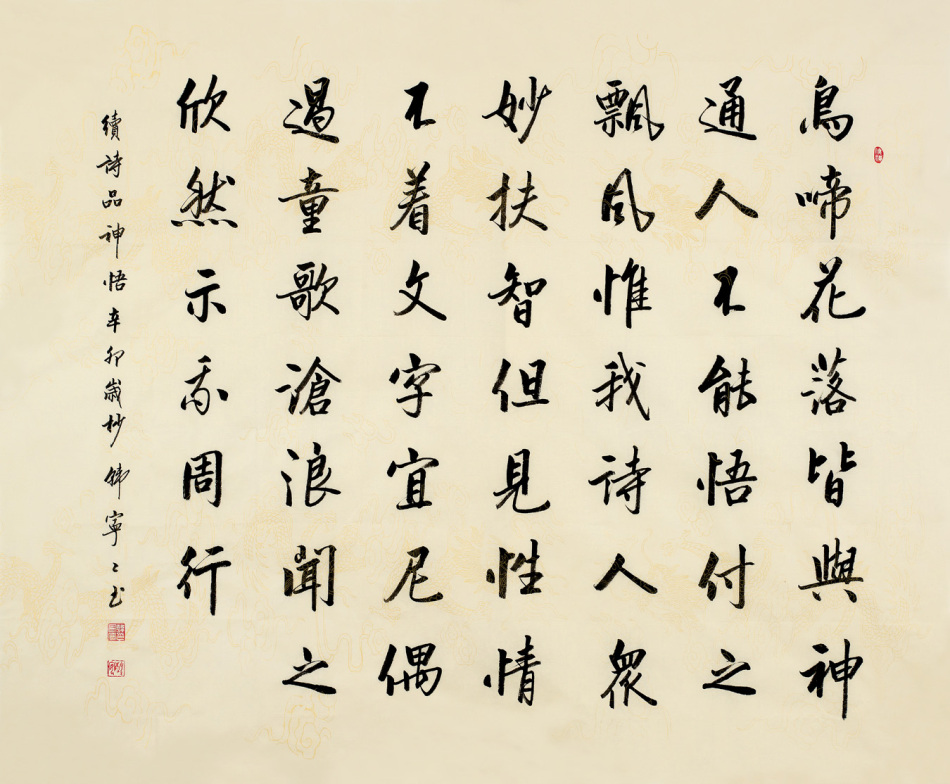 鳥啼花落皆與神
通人不能悟付之
飄風惟我詩人眾
妙扶智但見性情
不着文字宜尼偶
過童歌滄浪聞之
欣然示我周行
續詩品神悟辛卯歲杪韩寧寧书